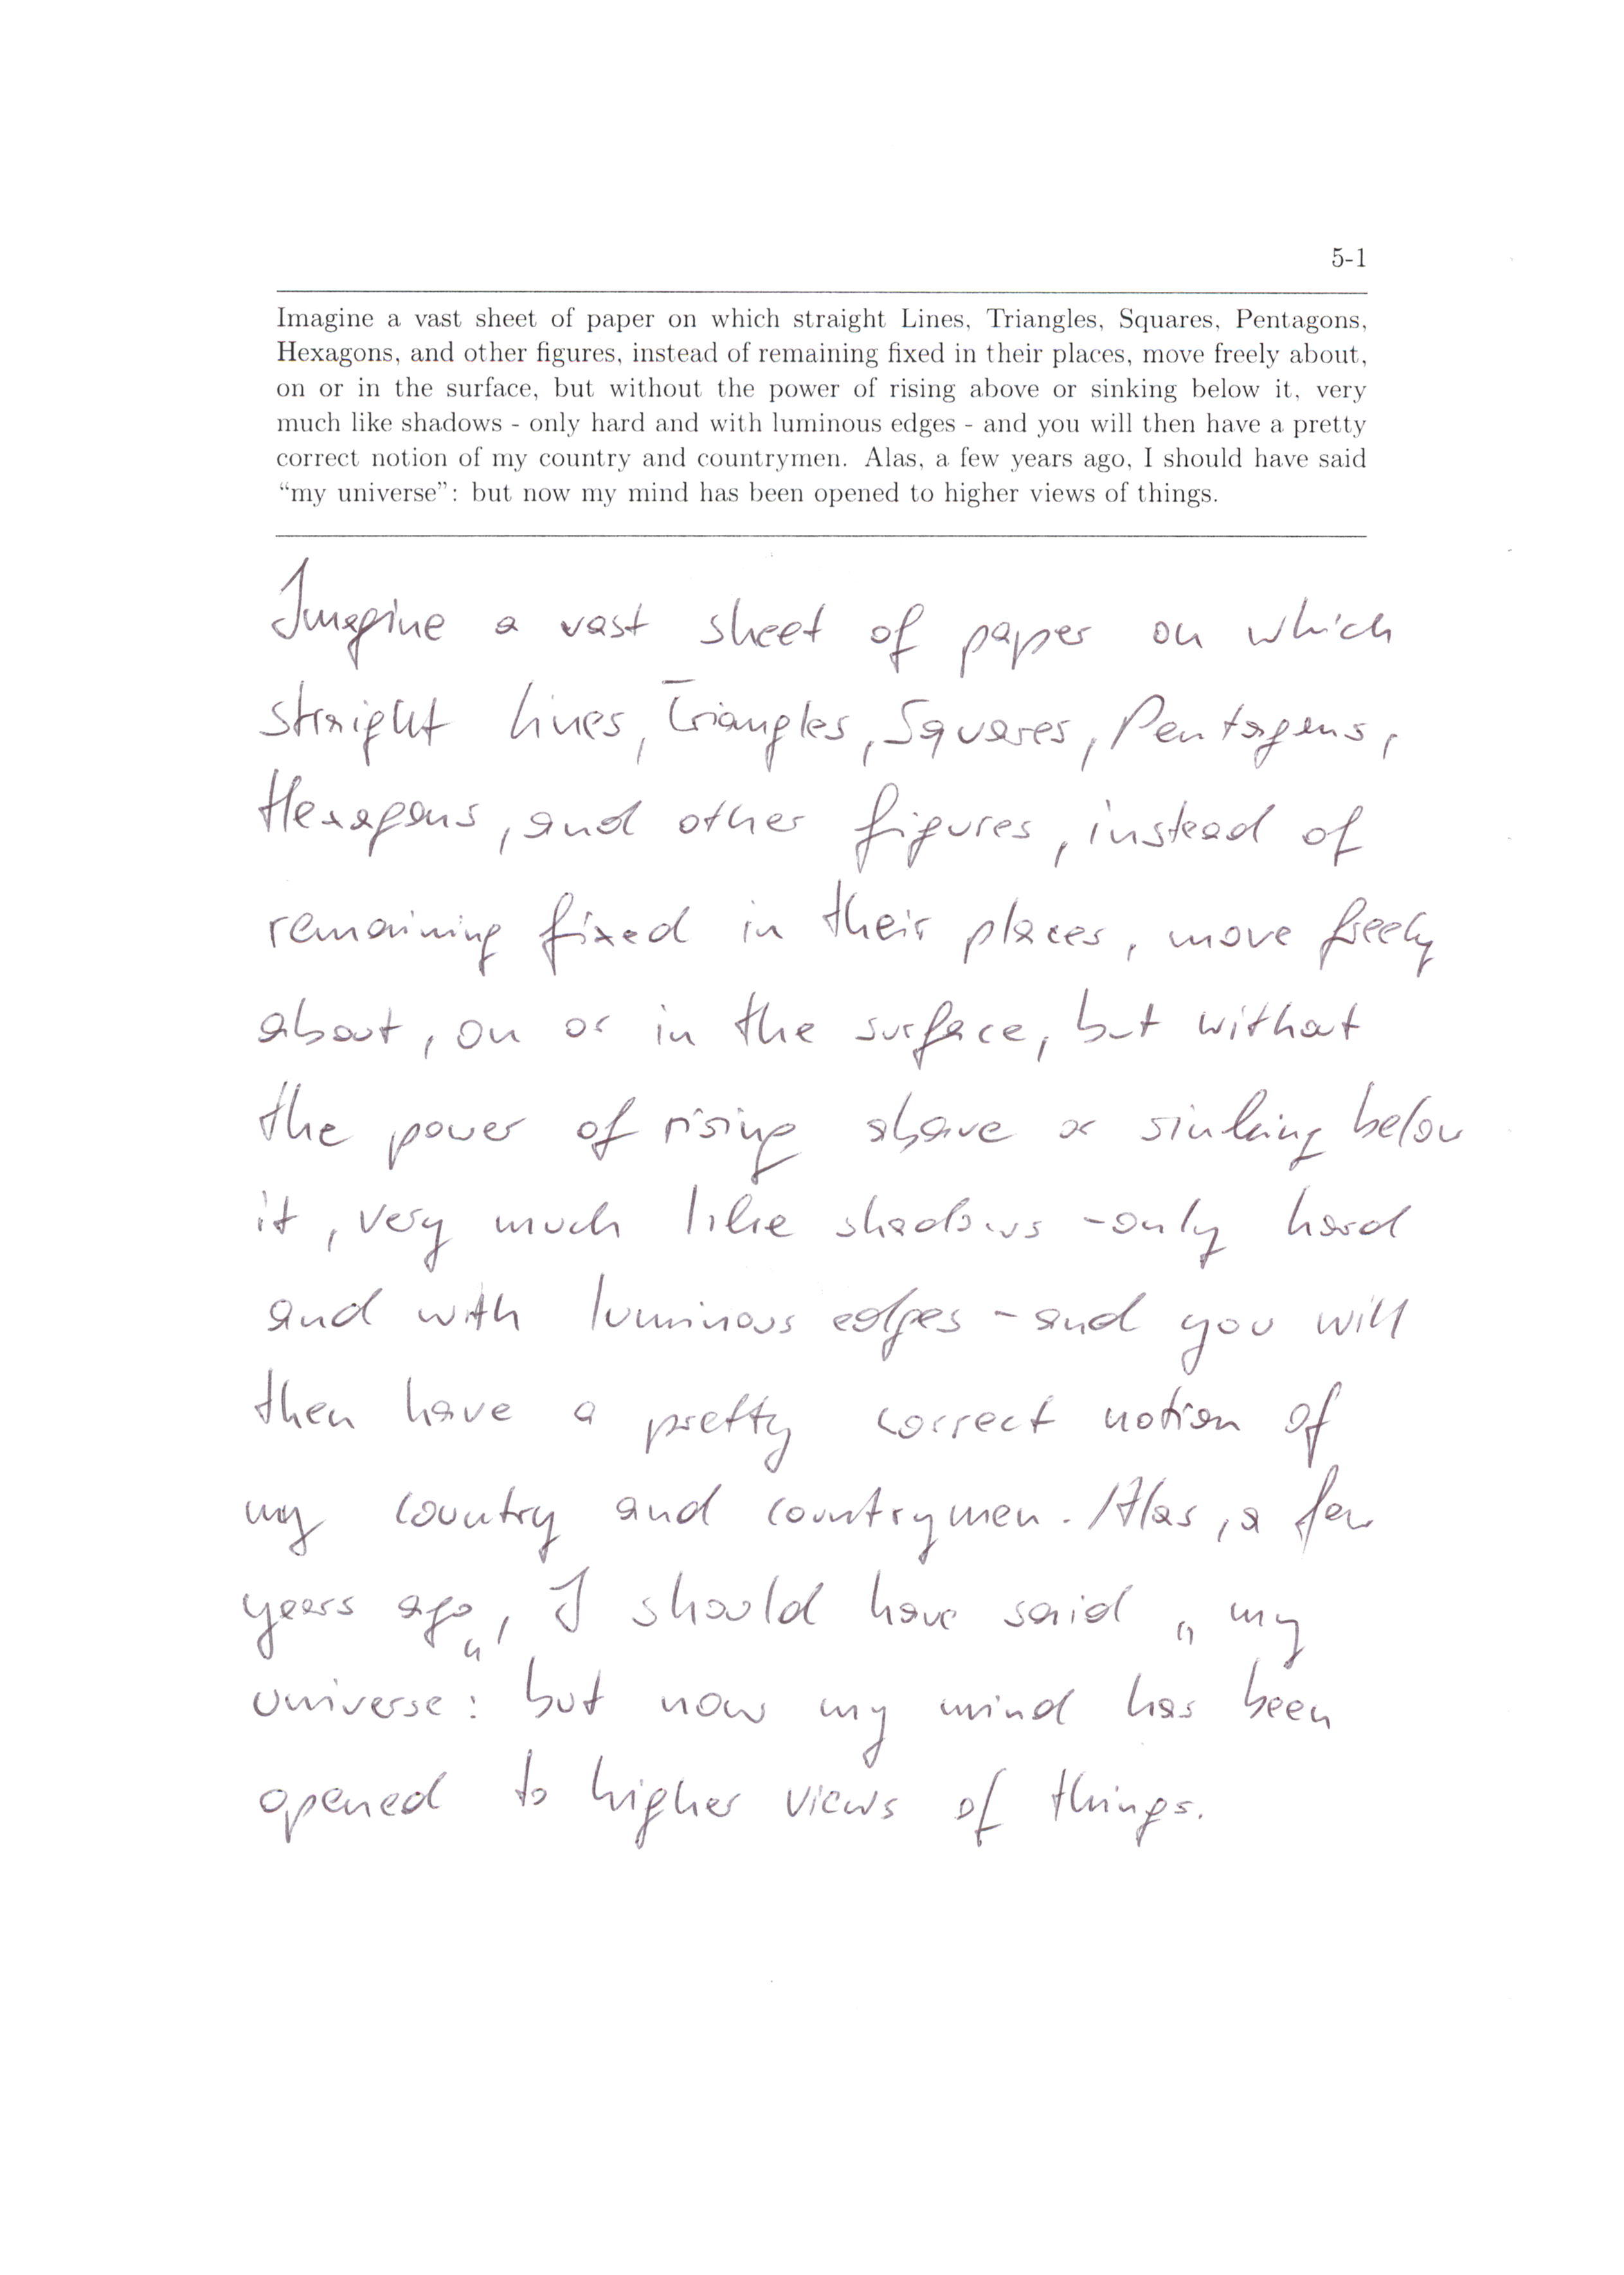 5-1
Imagine a vast sheet of paper on which straight Lines, Triangles, Squares, Pentagons,
Hexagons, and other figures, instead of remaining fixed in their places, move freely about,
on or in the surface, but without the power of rising above or sinking below it, very
much like shadows - only hard and with luminous edges - and you will then have a pretty
correct notion of my country and countrymen. Alas, a few years ago, I should have said
“my universe”: but now my mind has been opened to higher views of things.
Imagine a vast sheet of paper on which
straight lines, Triangles, Squares, Pentagons,
Hexagons, and other figures, instead of
remaining fixed in their places, move freely
about, on or in the surface, but without
the power of rising above or sinking below
it, very much like shadows -only hard
and with luminous edges - and you will
then have a pretty correct notion of
my country and countrymen. Alas, a few
years ago, I should have said „my
universe“: but now my mind has been
opened to higher views of things.